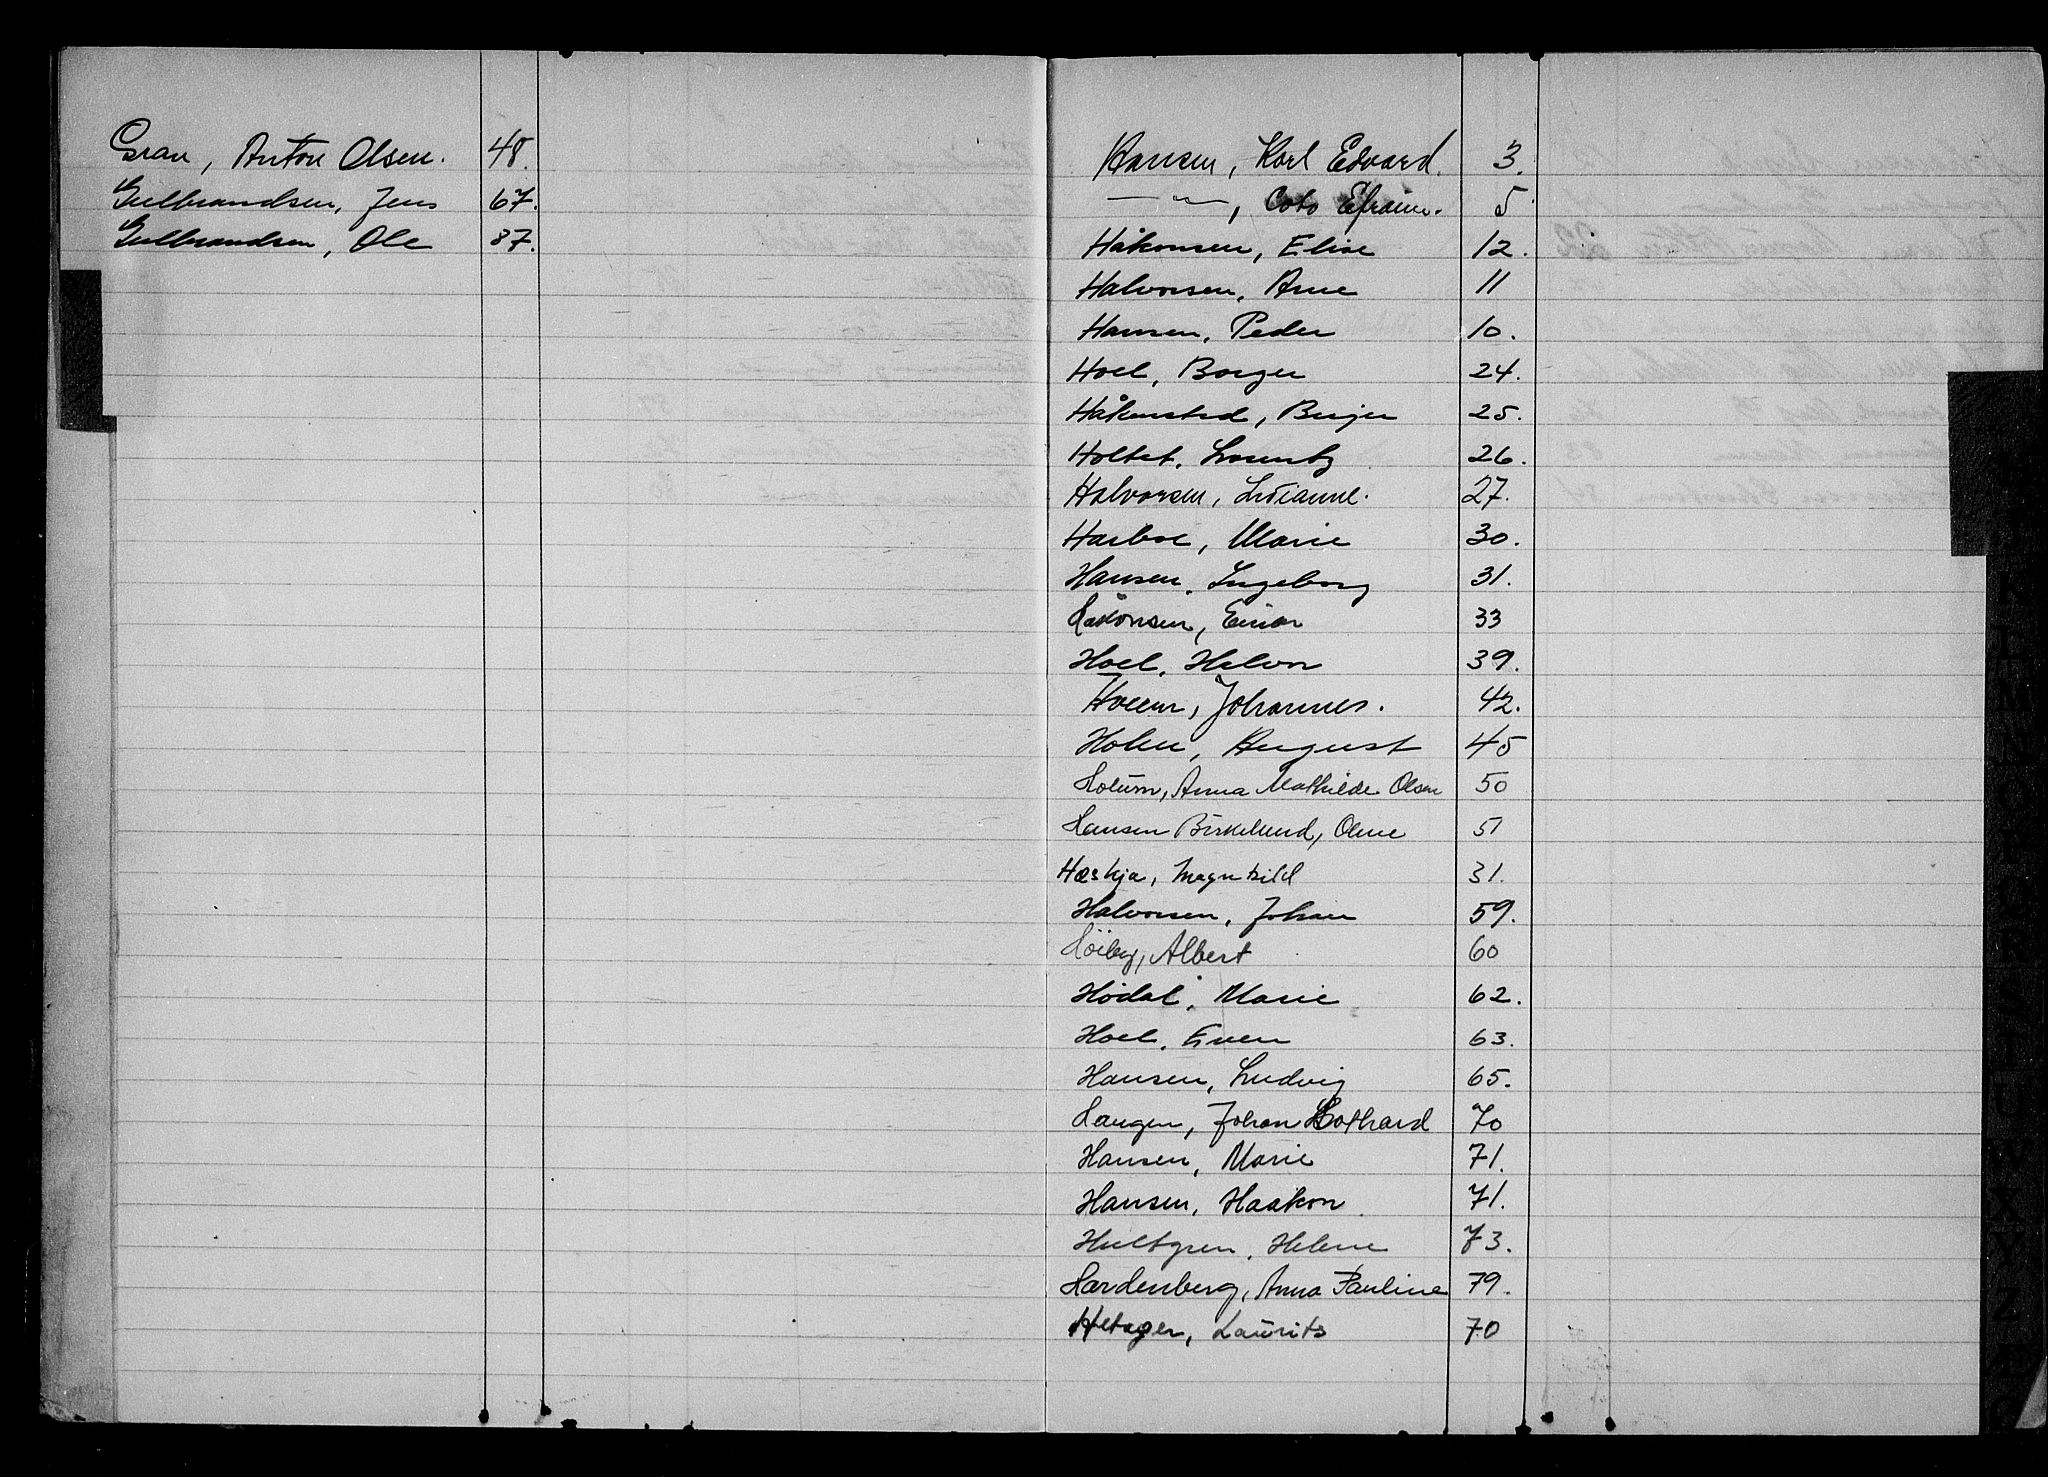 Gran, Anton Olsen. 48.
Gulbrandsen, Jens 67.
Gulbrandsen, Ole 87.
Hansen, Karl Edvard. 3.
— " —, Efraim. 5
Håkonsen, Elise 12.
Halvorsen, Arne 11
Hansen, Peder 10.
Hoel, Borger 24.
Håkenstad, Birger 25.
Holtet, Lorentz 26.
Halvorsen, Indianne. 27.
Harboe, Marie 30.
Hansen, Ingeborg 31.
Håkonsen, Einar 33
Hoel, Halvor 39.
Hveem, Johannes. 42.
Holen, August 45
Holum, Anna Mathilde Olsen 50
Hansen Birkelund, Oline 51
Haskja, Magnhild 31.
Halvorsen, Johan 59.
Höiby, Albert 60
Hødal, Marie 62.
Hoel, Even 63.
Hansen, Ludvig 65.
Haugen, Johan Lothard 70
Hansen, Marie 71.
Hansen, Haakon 71.
Hultgren, Helene 73.
Hardenberg, Anna Pauline 79.
Hetager, Laurits 70